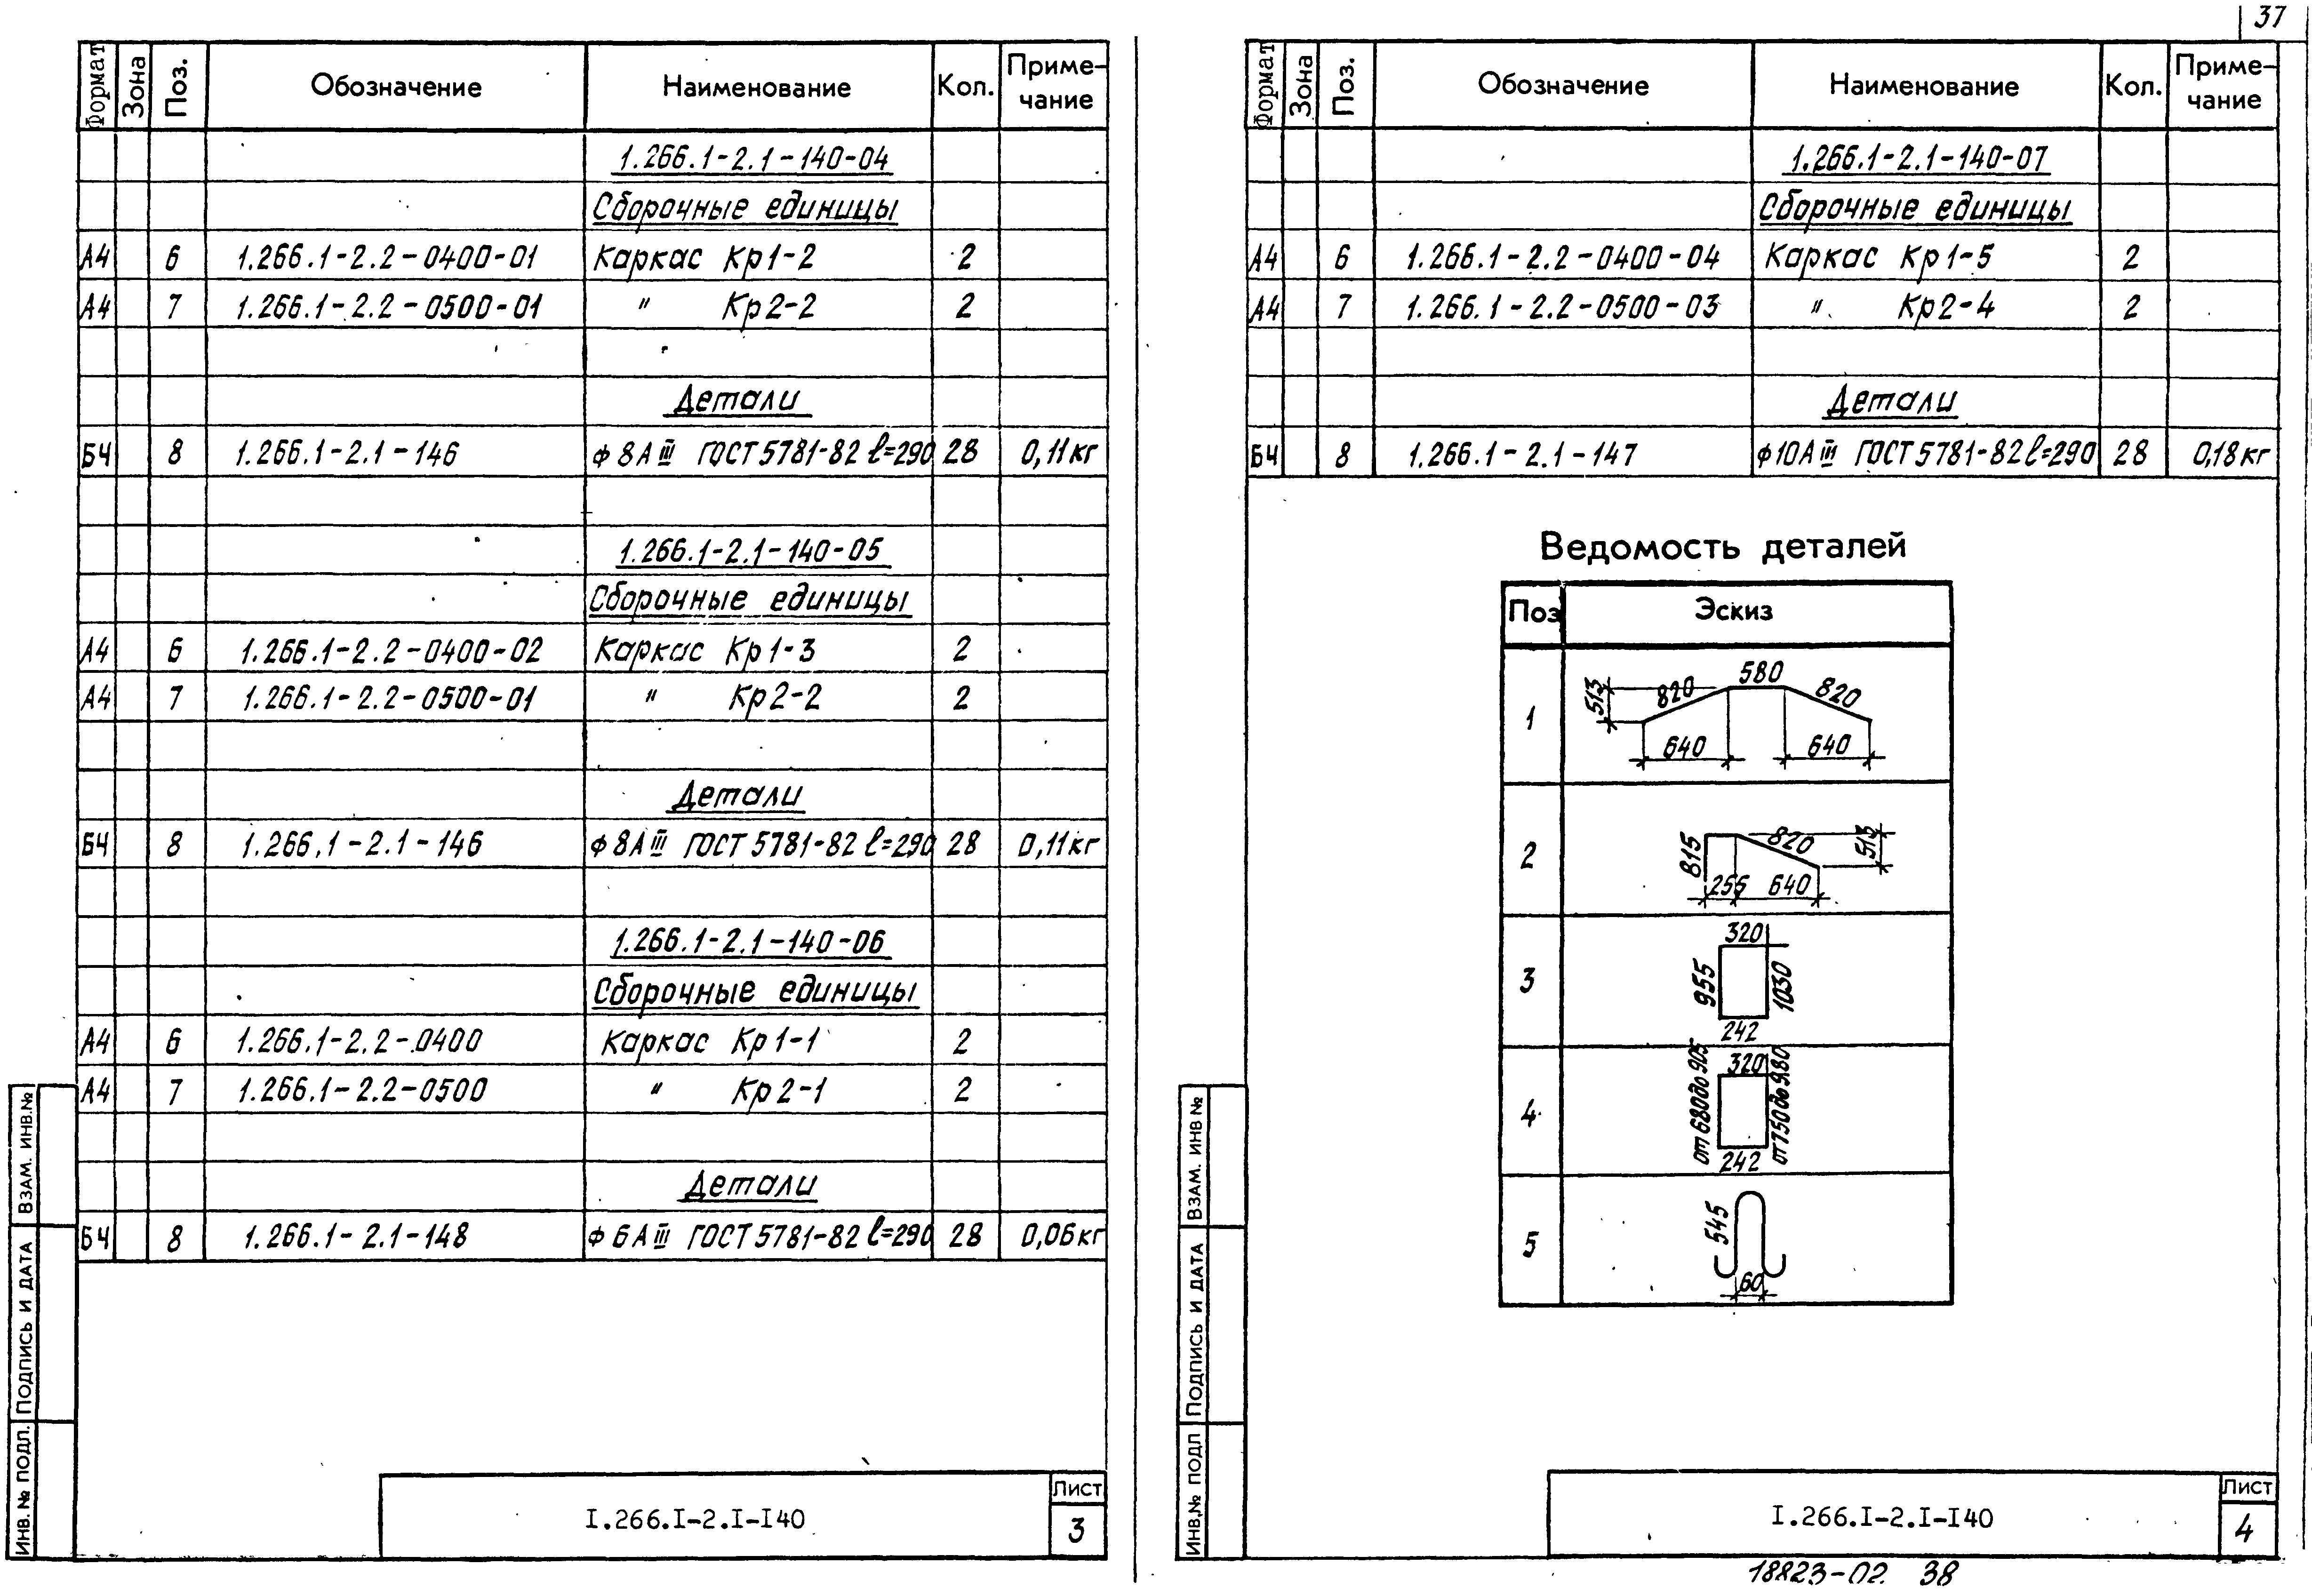 37
Формат Зона Поз. Обозначение Наименование Кол. Приме-
чание
1.266.1-2.1-140-04
Сборочные единицы
А4 6 1.266.1-2.2-0400-01 Каркас Кр1-2 2
А4 7 1.266.1-2.2-0500-01 " Кр2-2 2
Детали
БЧ 8 1.266.1-2.1-146 ф8АIII ГОСТ 5781-82 ℓ=290 28 0,11кг
1.266.1-2.1-140-05
Сборочные единицы
А4 6 1.266.1-2.2-0400-02 Каркас Кр1-3 2
А4 7 1.266.1-2.2-0500-01 " Кр2-2 2
Детали
БЧ 8 1.266.1-2.1-146 ф8АIII ГОСТ 5781-82 ℓ=290 28 0,11кг
1.266.1-2.1-140-06
Сборочные единицы
А4 6 1.266.1-2.2-0400 Каркас Кр1-1 2
А4 7 1.266.1-2.2-0500 " Кр2-1 2
Детали
БЧ 8 1.266.1-2.1-148 ф6АIII ГОСТ 5781-82 ℓ=290 28 0,06кг
ИНВ. № ПОДЛ. ПОДПИСЬ И ДАТА ВЗАМ. ИНВ.№
I.266.I-2.I-I40
Лист
3
Формат Зона Поз. Обозначение Наименование Кол. Приме-
чание
1.266.1-2.1-140-07
Сборочные единицы
А4 6 1.266.1-2.2-0400-04 Каркас Кр1-5 2
А4 7 1.266.1-2.2-0500-03 " Кр2-4 2
Детали
БЧ 8 1.266.1-2.1-147 ф10АIII ГОСТ 5781-82 ℓ=290 28 0,18кг
Ведомость деталей
Поз Эскиз
1 513 820 580 820
640 640
2 815 820 513
255 640
3 320
955 1030
242
4 320
от 680 до 905 от 750 до 980
242
5 545
60
ИНВ.№ ПОДЛ ПОДПИСЬ И ДАТА ВЗАМ. ИНВ №
I.266.I-2.I-I40
Лист
4
18823-02 38